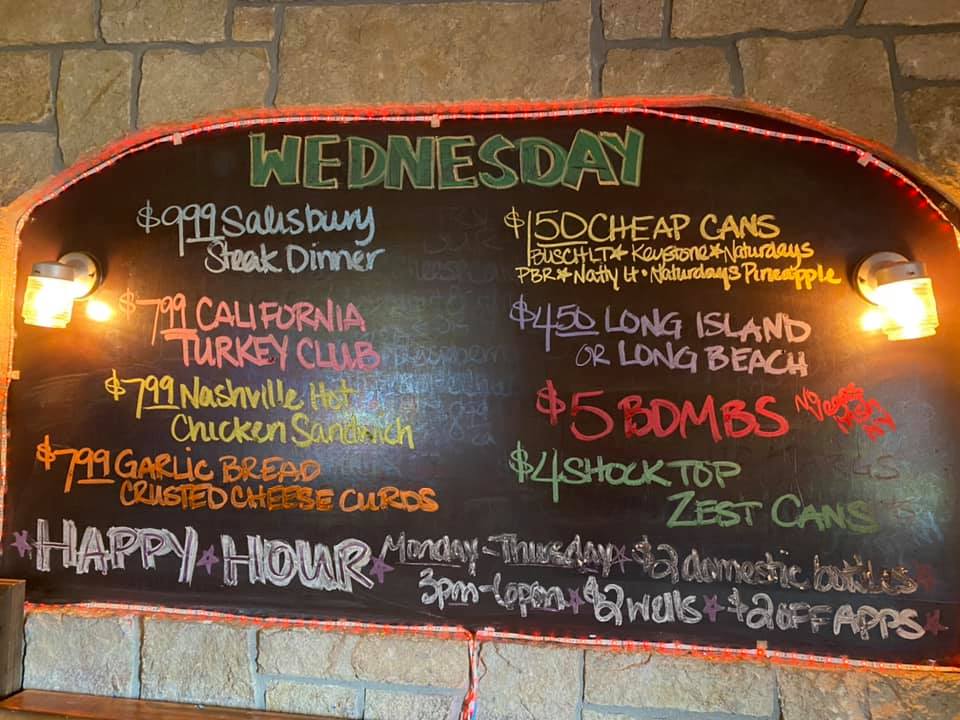 WEDNESDAY
$9.99 Salisbury
Steak Dinner
$7.99 CALIFORNIA
TURKEY CLUB
$7.99 Nashville Hot
Chicken Sandwich
$7.99 GARLIC BREAD
CRUSTED CHEESE CURDS
$1.50 CHEAP CANS
BUSCH LT * Keystone * Naturdays
PBR * Natty Lt * Naturdays Pineapple
$4.50 LONG ISLAND
OR LONG BEACH
$5 BOMBS
$4 SHOCK TOP
ZEST CANS
HAPPY * HOUR * Monday - Thursday * $2 domestic bottles
3pm - 6pm * $2 wells * $2 OFF APPS